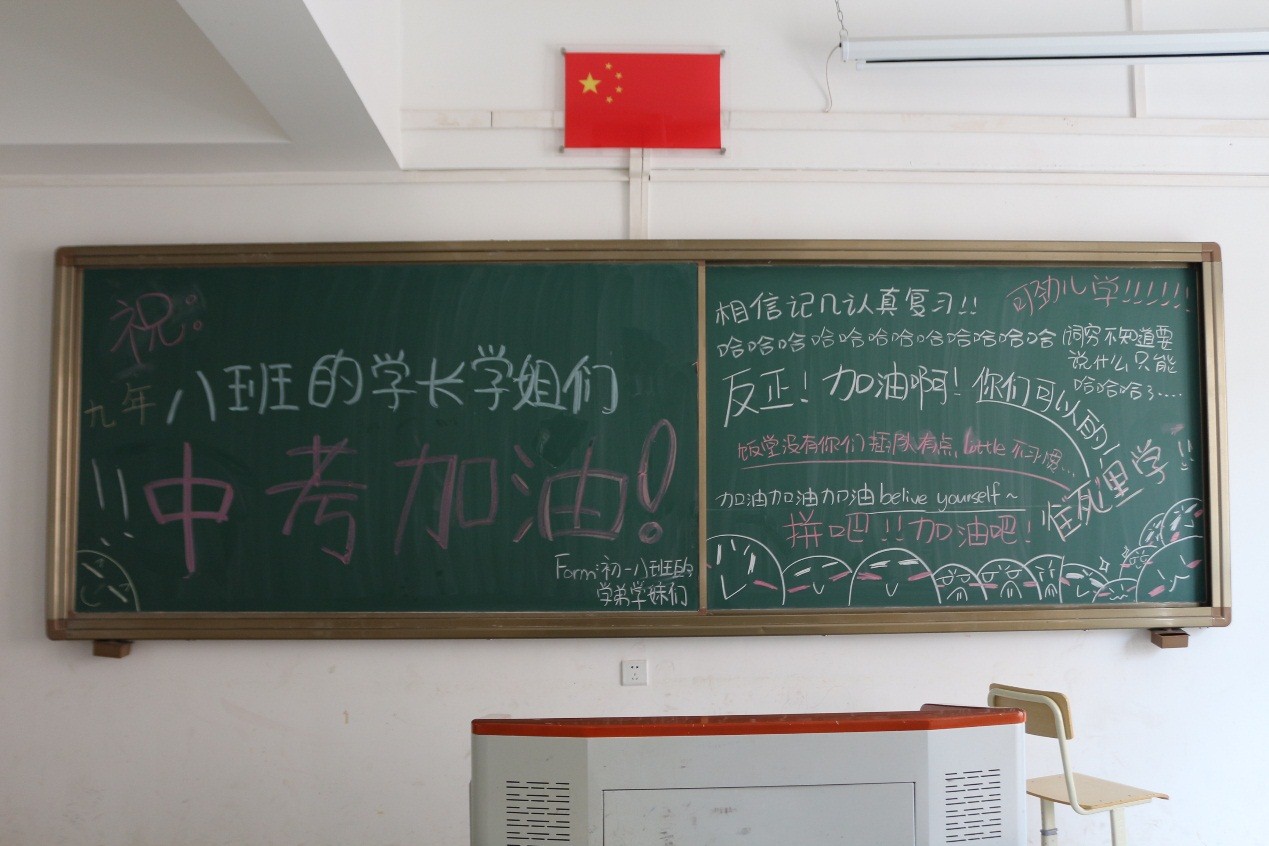 祝:
九年八班的学长学姐们
中考加油!
Form:初一八班的
学弟学妹们
可劲儿学!!!!!!
相信记几认真复习!!
哈哈哈哈哈哈哈哈哈哈哈哈
词穷不知道要
说什么只能
哈哈哈了....
反正!加油啊!你们可以的!
往死里学!!
饭堂没有你们插队有点little不习惯...
加油加油加油belive yourself~
拼吧!!加油吧!